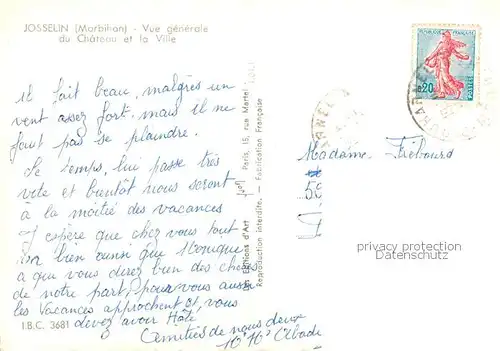 JOSSELIN (Morbihan) - Vue générale
du Château et la Ville
il fait beau, malgrès un
vent assez fort, mais il ne
faut pas se plaindre.
Le temps, lui passe très
vite et bientôt nous seront
à la moitié des vacances
J'espère que chez vous tout
va bien ainsi que Monique
à qui vous direz bien des choses
de notre part, pour vous aussi
les Vacances approchent et, vous
devez avoir Hâte
Amitiés de nous deux
I.B.C. 3681
Les Editions d'Art Paris, 15, rue Martel
Reproduction interdite. — Fabrication Française
REPUBLIQUE FRANÇAISE
0,20
POSTES
Madame Fribourg
58
privacy protection
Datenschutz